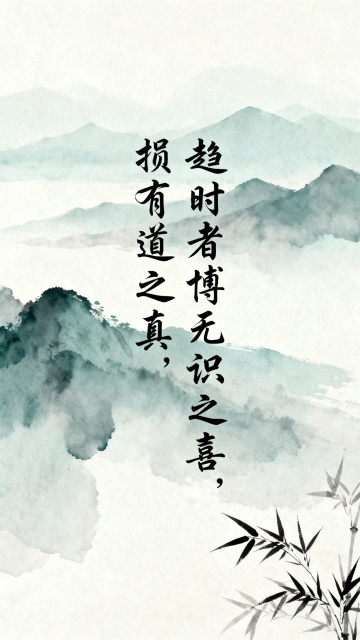 趋时者博无识之喜，
损有道之真，